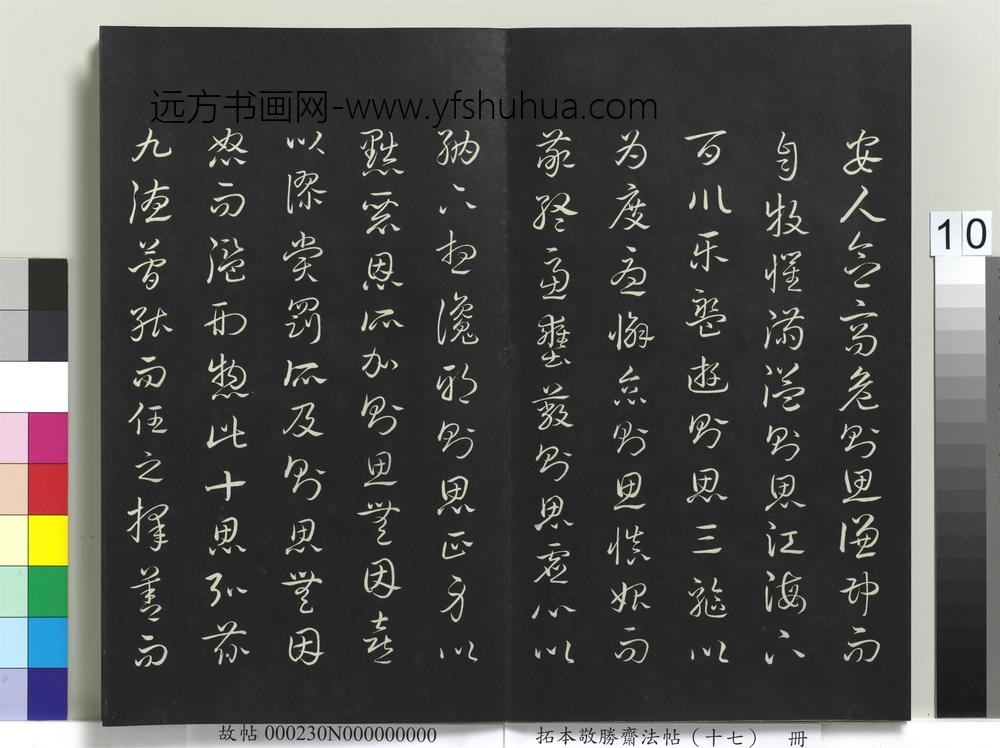 远方书画网-www.yfshuhua.com
安人念高危則思謙沖而
自牧懼滿溢則思江海下
百川樂盤遊則思三驅以
為度憂懈怠則思慎始而
敬終慮壅蔽則思虛心以
納下想讒邪則思正身以
黜惡恩所加則思無因喜
以謬賞罰所及則思無因
怒而濫刑總此十思弘茲
九德簡能而任之擇善而
10
故帖 000230N000000000
拓本敬勝齋法帖（十七） 冊